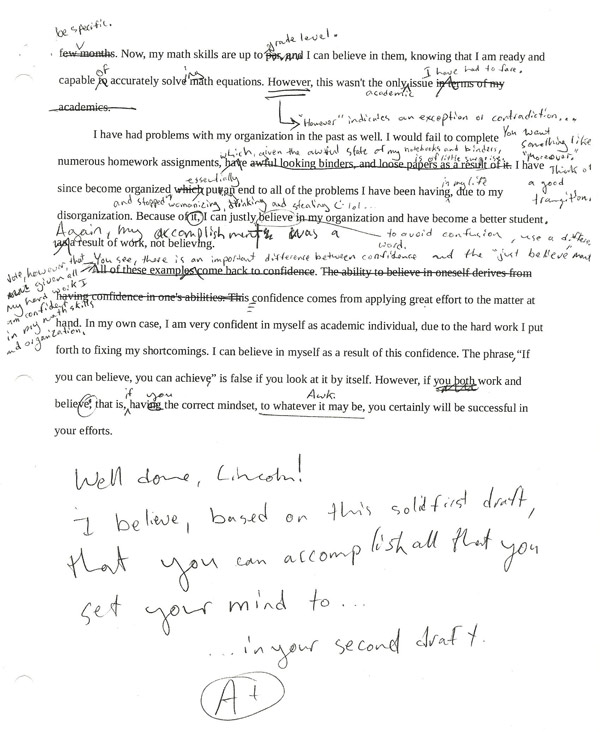 be specific.
grade level.
few months. Now, my math skills are up to par, and I can believe in them, knowing that I am ready and
of ing I have had to face.
capable to accurately solve math equations. However, this wasn't the only issue in terms of my
academic
academics.
"However" indicates an exception or contradiction...
I have had problems with my organization in the past as well. I would fail to complete
You want something like "Moreover." Think of a good transition.
which, given the awful state of my notebooks and binders, is of little surprise.
numerous homework assignments, have awful looking binders, and loose papers as a result of it. I have
essentially in my life
since become organized which put an end to all of the problems I have been having, due to my
and stopped womanizing, thinking and stealing
disorganization. Because of it, I can justly believe in my organization and have become a better student,
Again, my accomplishments was a
to avoid confusion, use a different word.
as a result of work, not believing.
You see, there is an important difference between confidence and the "just believe"
Note, however, that given all my hard work I am confident in my math skills and organization.
All of these examples come back to confidence. The ability to believe in oneself derives from
having confidence in one's abilities. This confidence comes from applying great effort to the matter at
hand. In my own case, I am very confident in myself as academic individual, due to the hard work I put
forth to fixing my shortcomings. I can believe in myself as a result of this confidence. The phrase, "If
you can believe, you can achieve" is false if you look at it by itself. However, if you both work and
if you Awk.
believe, that is, having the correct mindset, to whatever it may be, you certainly will be successful in
your efforts.
Well done, Lincoln!
I believe, based on this solid first draft,
that you can accomplish all that you
set your mind to...
...in your second draft.
A+